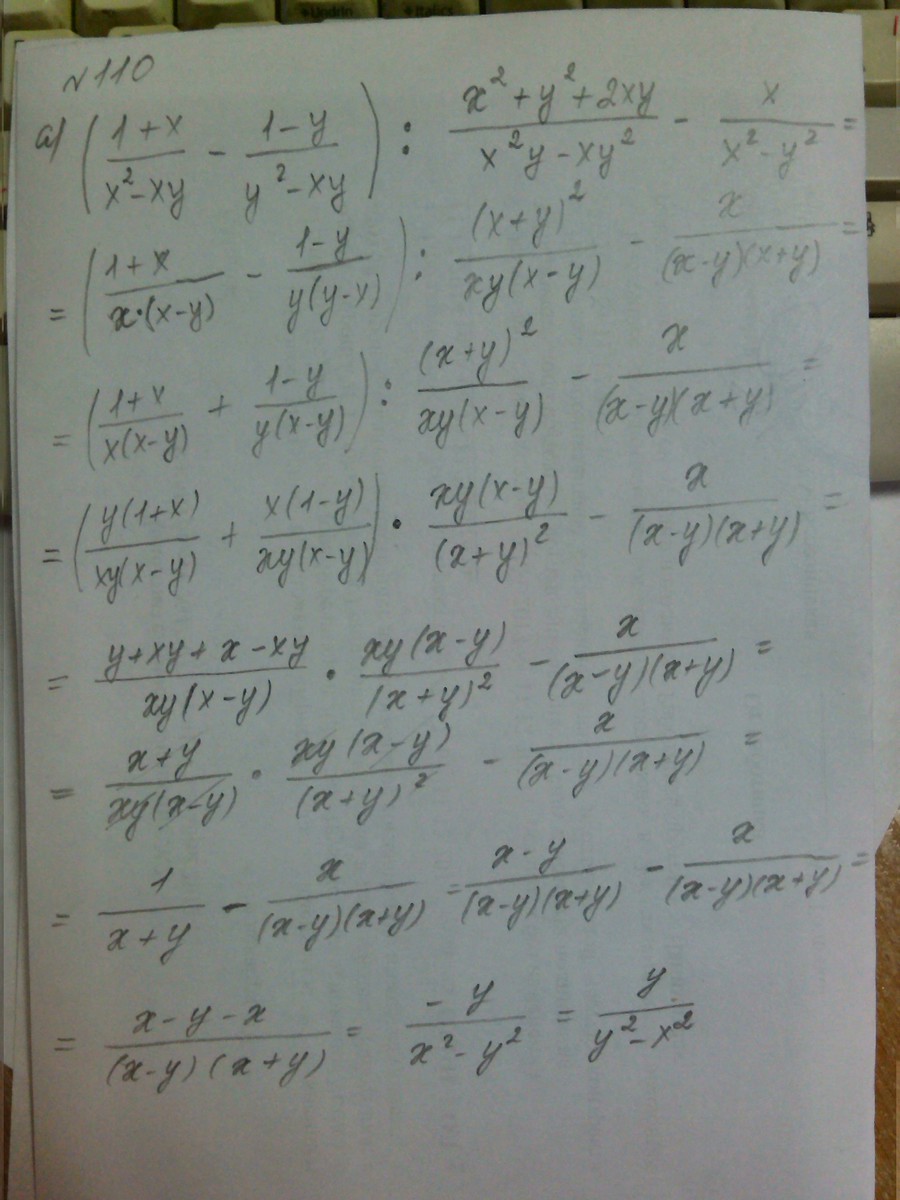 №110
а) ((1+x)/(x²-xy) - (1-y)/(y²-xy)) : (x²+y²+2xy)/(x²y-xy²) - x/(x²-y²) =
= ((1+x)/(x·(x-y)) - (1-y)/(y(y-x))) : (x+y)²/(xy(x-y)) - x/((x-y)(x+y)) =
= ((1+x)/(x(x-y)) + (1-y)/(y(x-y))) : (x+y)²/(xy(x-y)) - x/((x-y)(x+y)) =
= (y(1+x)/(xy(x-y)) + x(1-y)/(xy(x-y))) · xy(x-y)/(x+y)² - x/((x-y)(x+y)) =
= (y+xy+x-xy)/(xy(x-y)) · xy(x-y)/(x+y)² - x/((x-y)(x+y)) =
= (x+y)/(xy(x-y)) · xy(x-y)/(x+y)² - x/((x-y)(x+y)) =
= 1/(x+y) - x/((x-y)(x+y)) = (x-y)/((x-y)(x+y)) - x/((x-y)(x+y)) =
= (x-y-x)/((x-y)(x+y)) = -y/(x²-y²) = y/(y²-x²)